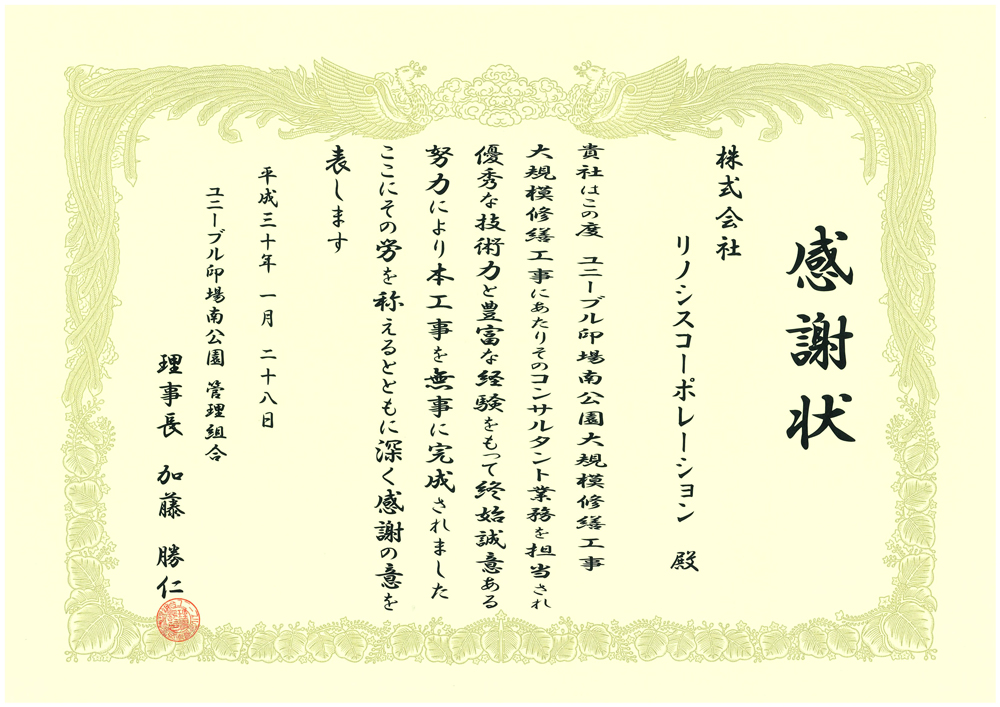 感謝状
株式会社
リノシスコーポレーション 殿
貴社はこの度 ユニーブル印場南公園大規模修繕工事
大規模修繕工事にあたりそのコンサルタント業務を担当され
優秀な技術力と豊富な経験をもって終始誠意ある
努力により本工事を無事に完成されました
ここにその労を称えるとともに深く感謝の意を
表します
平成三十年 一月 二十八日
ユニーブル印場南公園 管理組合
理事長 加藤 勝仁